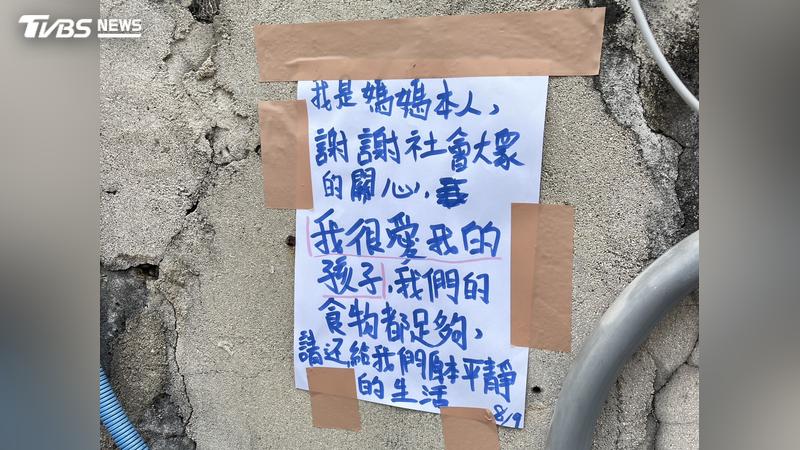 TVBS NEWS
我是媽媽本人,
謝謝社會大眾
的關心,
我很愛我的
孩子,我們的
食物都足夠,
請还給我們原本平靜
的生活
8/9